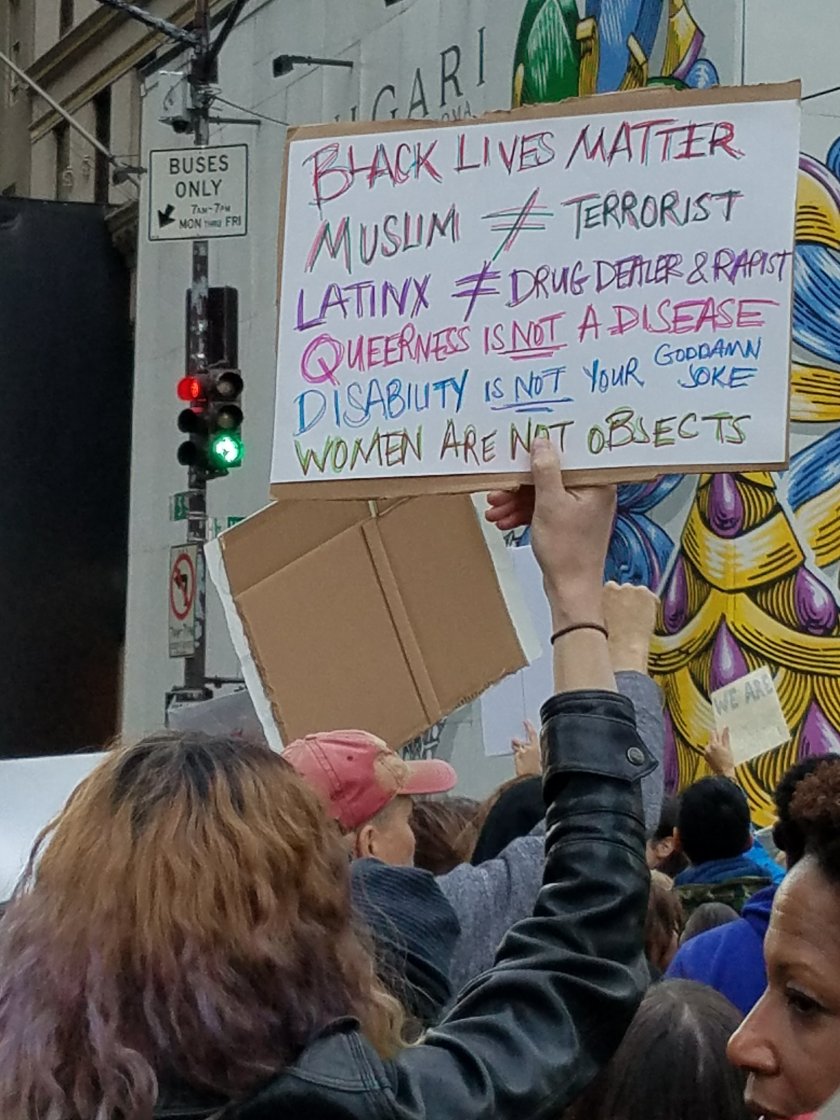 BUSES
ONLY
7AM-7PM
MON THRU FRI
BLACK LIVES MATTER
MUSLIM ≠ TERRORIST
LATINX ≠ DRUG DEALER & RAPIST
QUEERNESS IS NOT A DISEASE
DISABILITY IS NOT YOUR GODDAMN JOKE
WOMEN ARE NOT OBJECTS
WE ARE